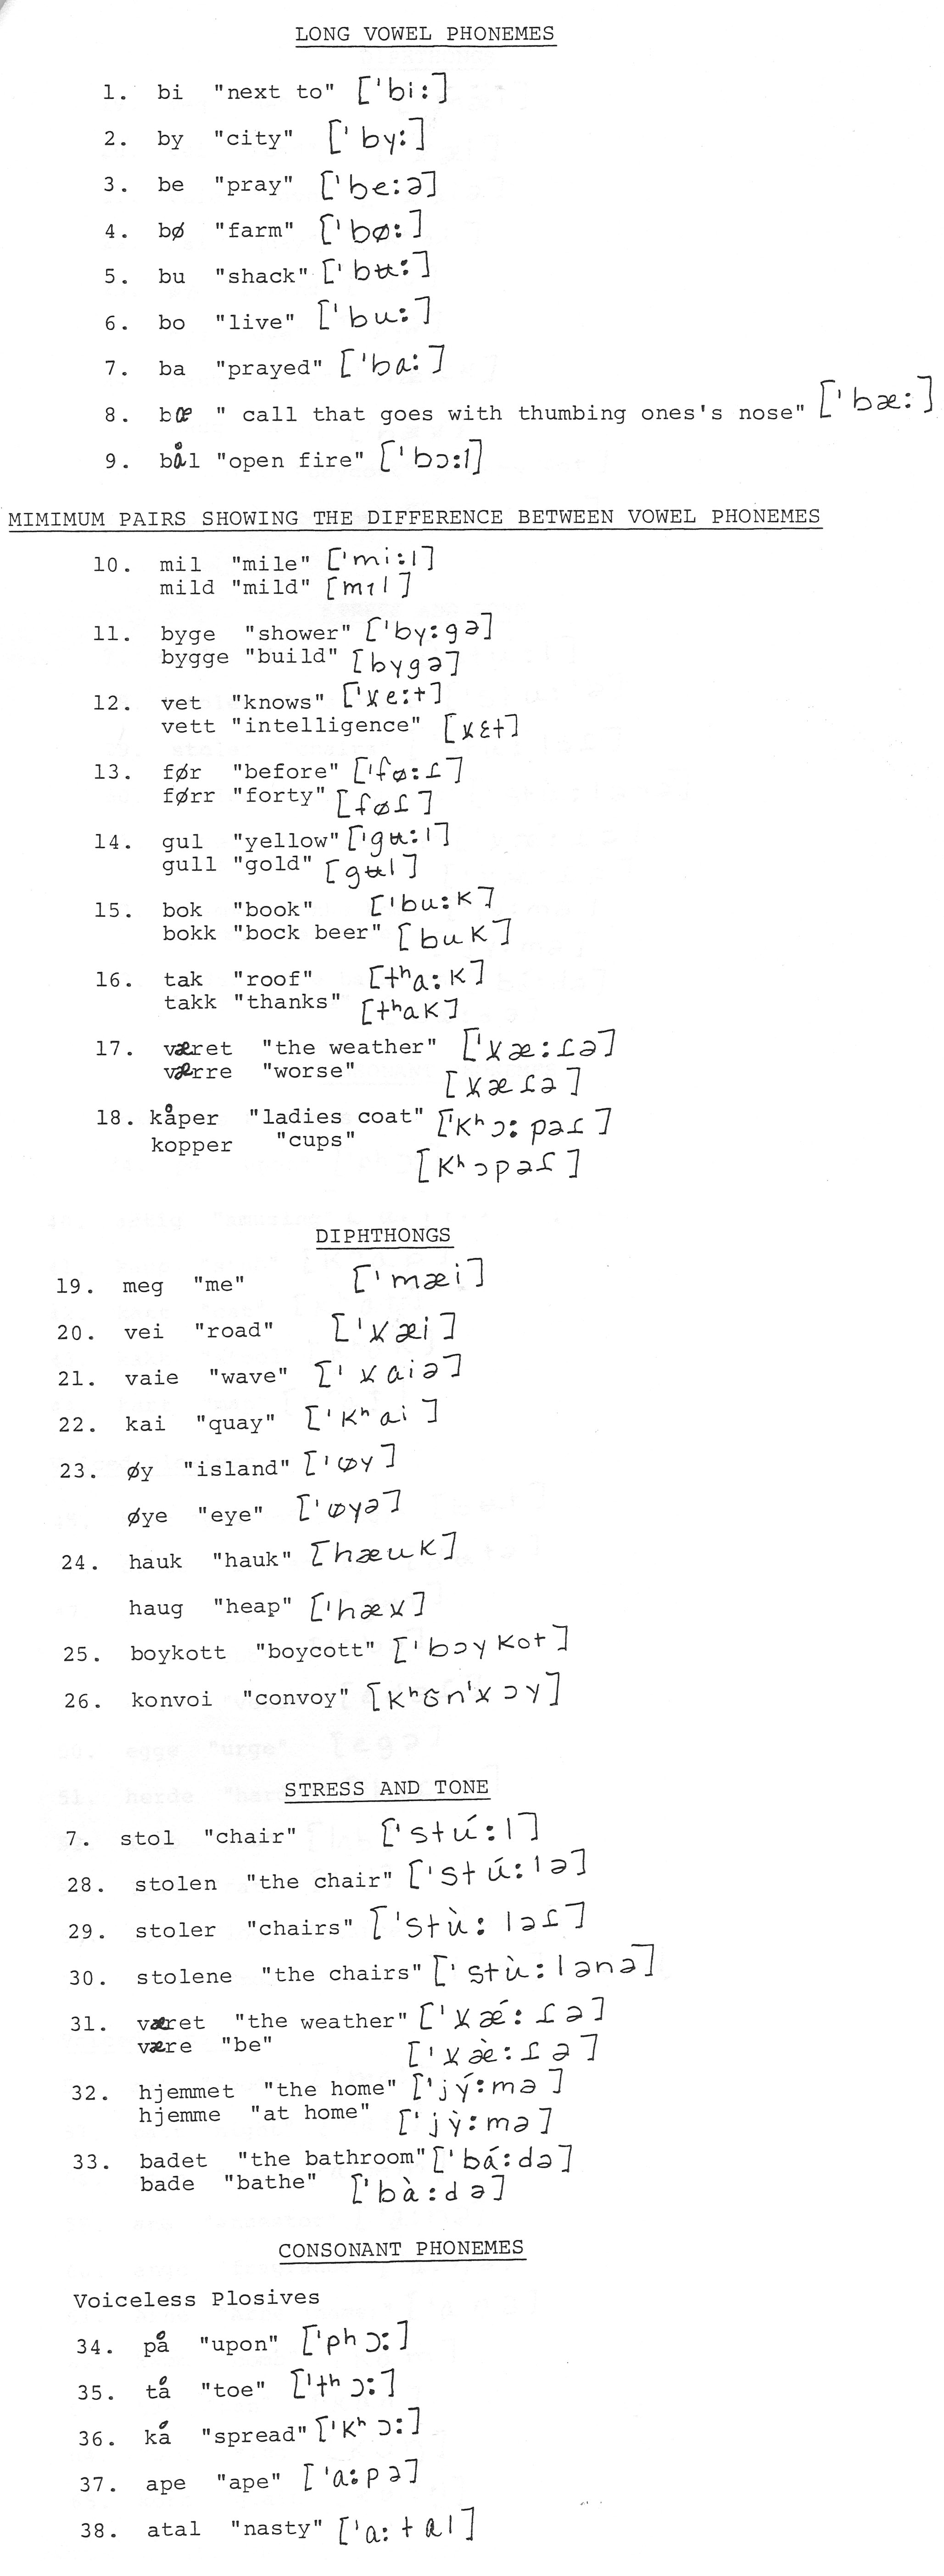 LONG VOWEL PHONEMES
1. bi "next to" [ˈbi:]
2. by "city" [ˈby:]
3. be "pray" [ˈbe:ə]
4. bø "farm" [ˈbø:]
5. bu "shack" [ˈbʉ:]
6. bo "live" [ˈbu:]
7. ba "prayed" [ˈba:]
8. bæ " call that goes with thumbing ones's nose" [ˈbæ:]
9. bål "open fire" [ˈbɔ:l]
MIMIMUM PAIRS SHOWING THE DIFFERENCE BETWEEN VOWEL PHONEMES
10. mil "mile" [ˈmi:l]
mild "mild" [mɪl]
11. byge "shower" [ˈby:gə]
bygge "build" [bygə]
12. vet "knows" [ˈʋe:t]
vett "intelligence" [ʋɛt]
13. før "before" [ˈfø:ɾ]
førr "forty" [føɾ]
14. gul "yellow" [ˈgʉ:l]
gull "gold" [gʉl]
15. bok "book" [ˈbu:k]
bokk "bock beer" [buk]
16. tak "roof" [tʰa:k]
takk "thanks" [tʰak]
17. været "the weather" [ˈʋæ:ɾə]
værre "worse" [ʋæɾə]
18. kåper "ladies coat" [ˈkʰɔ:pəɾ]
kopper "cups" [kʰɔpəɾ]
DIPHTHONGS
19. meg "me" [ˈmæi]
20. vei "road" [ˈʋæi]
21. vaie "wave" [ˈʋaiə]
22. kai "quay" [ˈkʰai]
23. øy "island" [ˈøy]
øye "eye" [ˈøyə]
24. hauk "hauk" [hæuk]
haug "heap" [ˈhæʋ]
25. boykott "boycott" [ˈbɔykot]
26. konvoi "convoy"
STRESS AND TONE
7. stol "chair" [ˈstú:l]
28. stolen "the chair" [ˈstú:lə]
29. stoler "chairs" [ˈstù:ləɾ]
30. stolene "the chairs" [ˈstù:lənə]
31. været "the weather" [ˈʋǽ:ɾə]
være "be" [ˈʋæ̀:ɾə]
32. hjemmet "the home" [ˈjý:mə]
hjemme "at home" [ˈjỳ:mə]
33. badet "the bathroom" [ˈbá:də]
bade "bathe" [ˈbà:də]
CONSONANT PHONEMES
Voiceless Plosives
34. på "upon" [ˈphɔ:]
35. tå "toe" [ˈtʰɔ:]
36. kå "spread" [ˈkʰɔ:]
37. ape "ape" [ˈa:pə]
38. atal "nasty" [ˈa:tal]